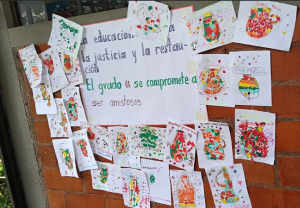 a educación
la justicia y la restau-
ción
El grado se compromete a
ser amistosos